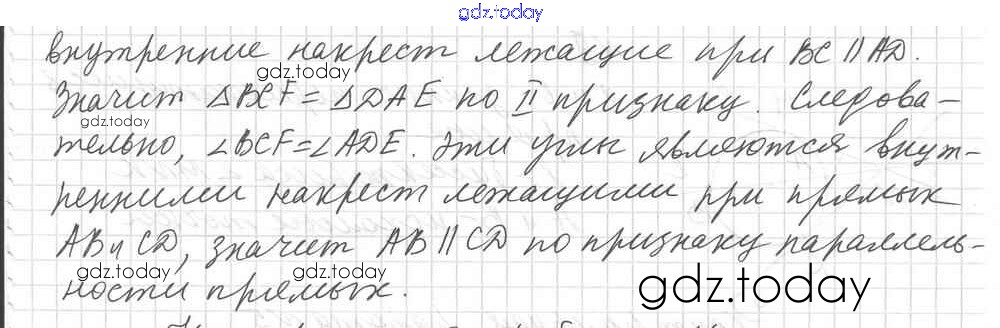 gdz.today
внутренние накрест лежащие при BC || AD.
gdz.today
Значит △BCF = △DAE по II признаку. Следова-
gdz.today
тельно, ∠BCF = ∠ADE. Эти углы являются внут-
ренними накрест лежащими при прямых
AB и CD, значит AB || CD по признаку параллель-
gdz.today gdz.today
ности прямых.
gdz.today